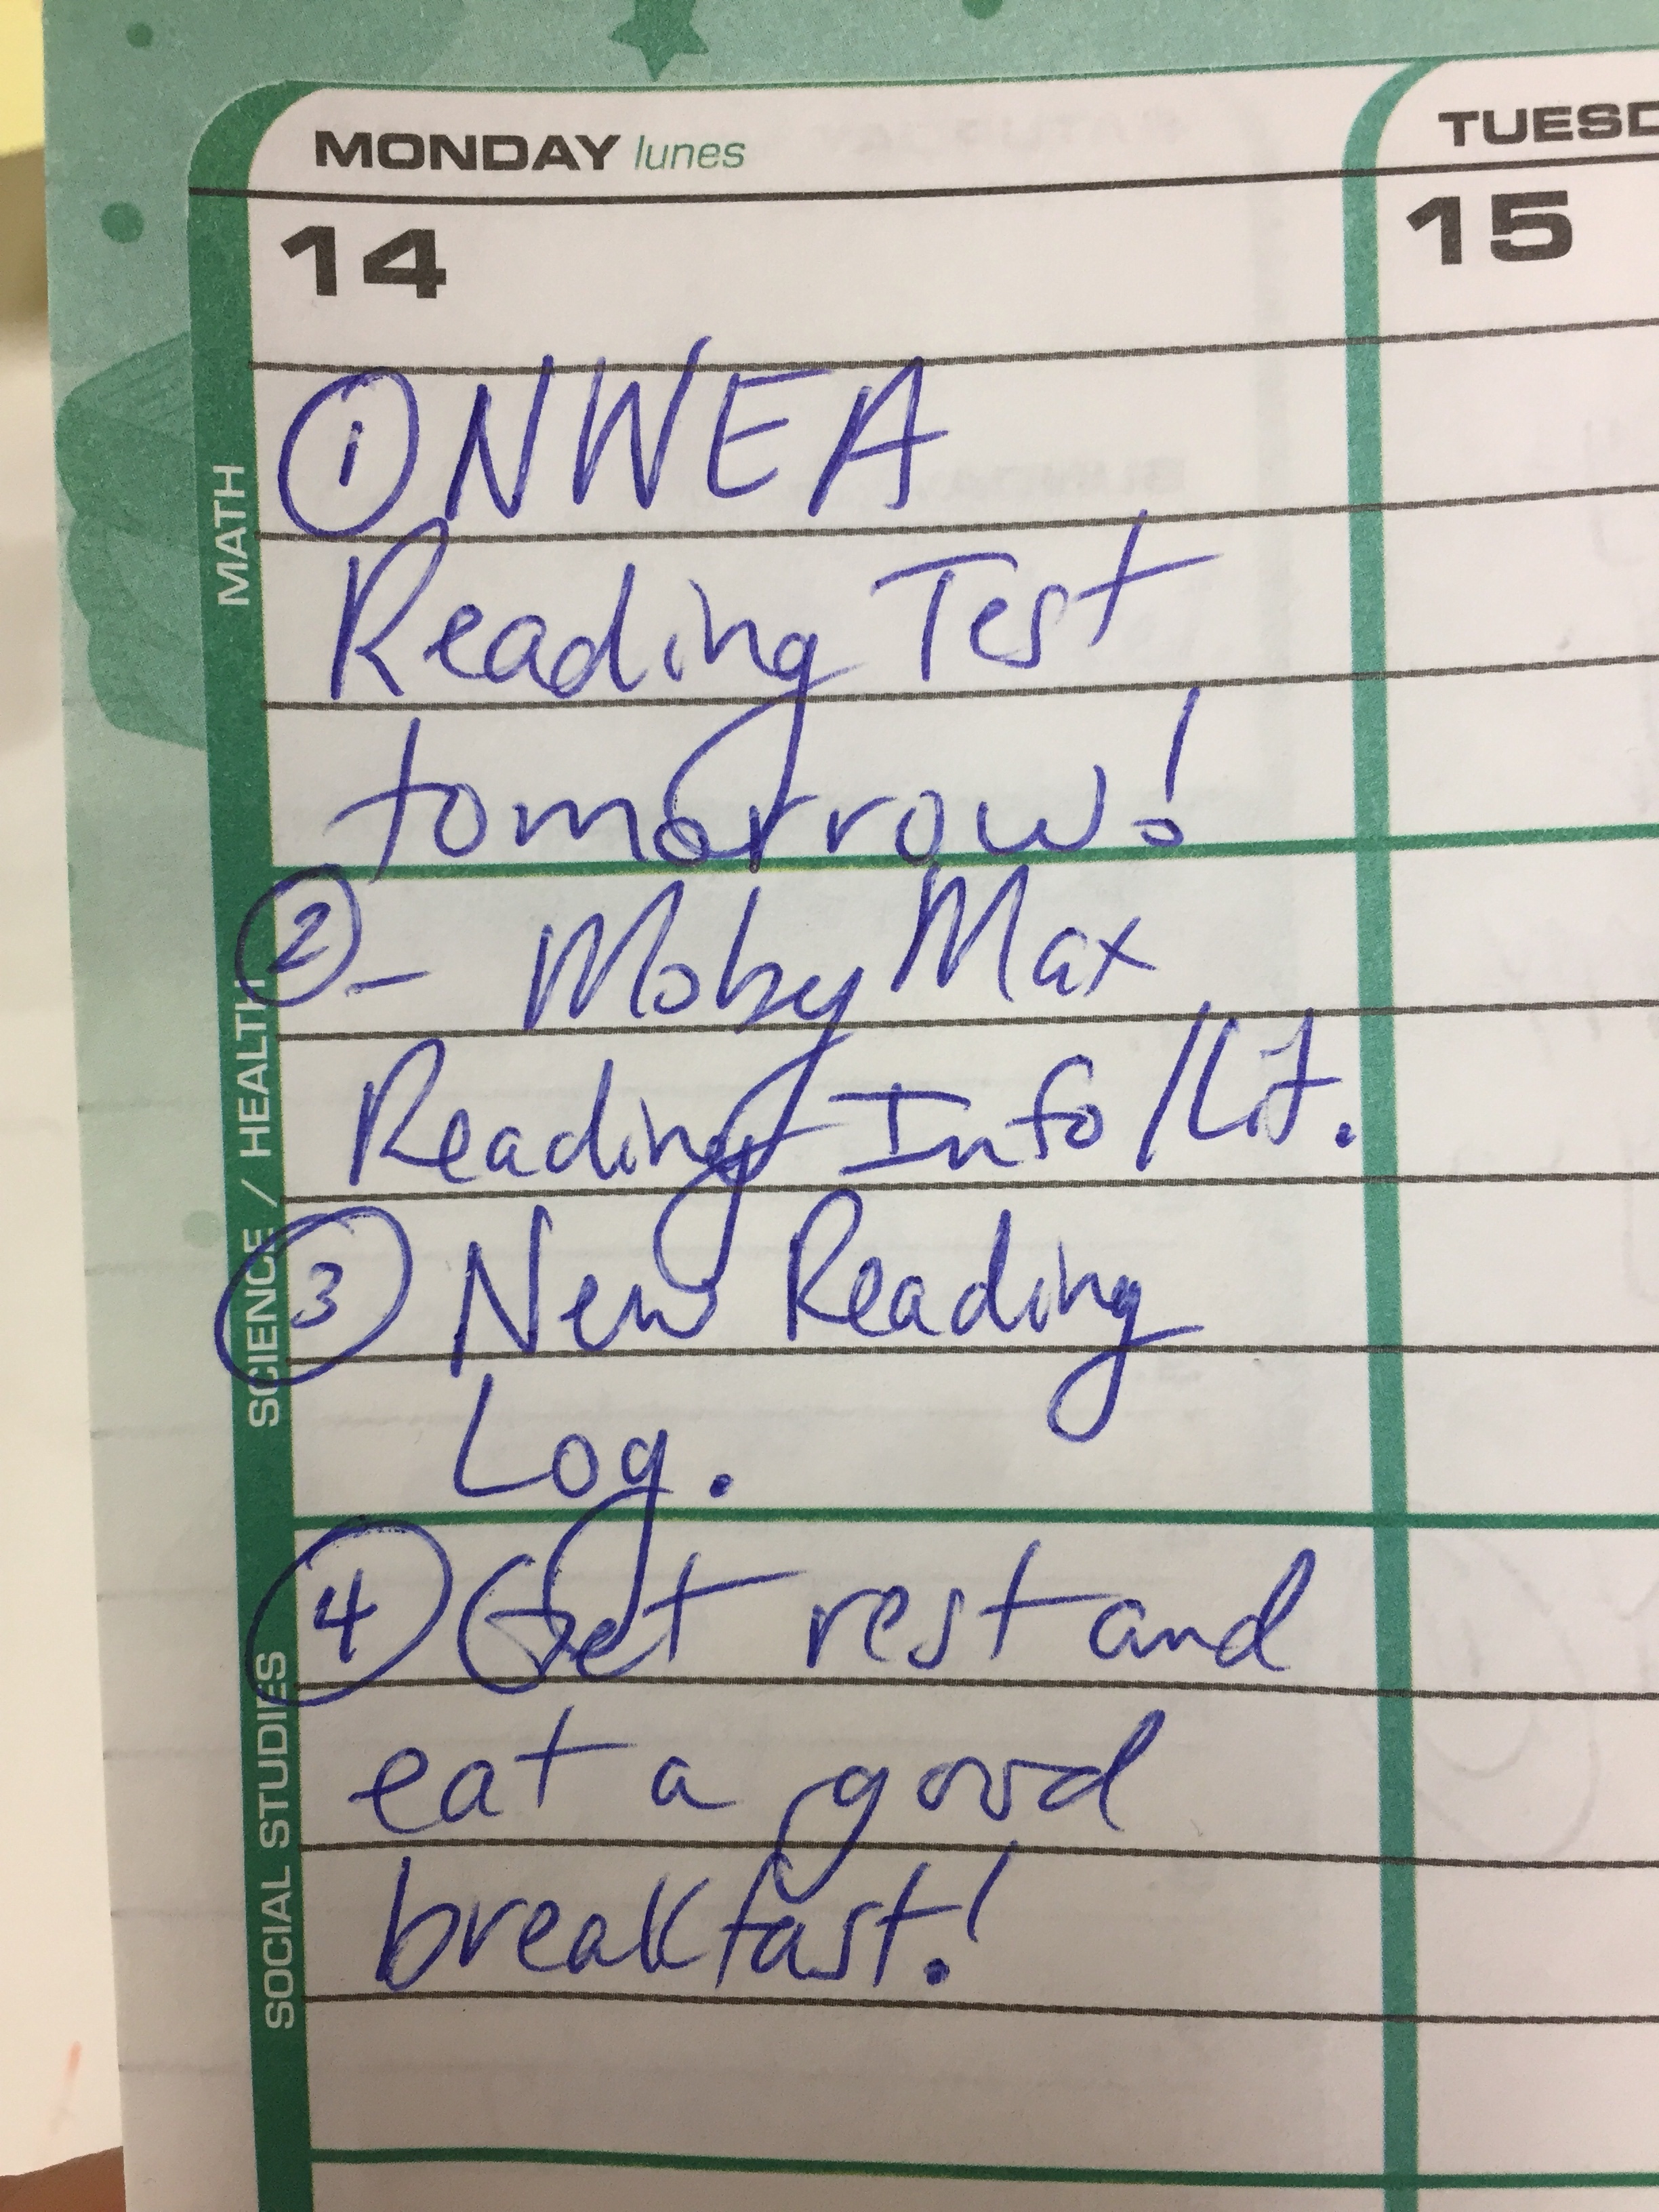 MONDAY lunes
TUESD
14
15
MATH
① NWEA
Reading Test
tomorrow!
SCIENCE / HEALTH
② - Moby Max
Reading Info/Lit.
③ New Reading
Log.
SOCIAL STUDIES
④ Get rest and
eat a good
breakfast!